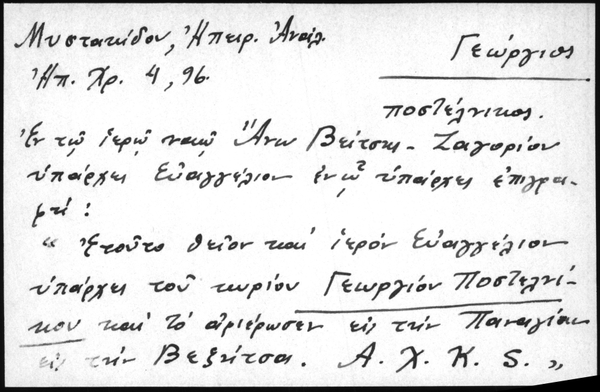 Μυστακίδου, Ἠπειρ. Ἀνάλ. Γεώργιος
Ἠπ. Χρ. 4, 96. ποστέλνικος.
Ἐν τῷ ἱερῷ ναῷ Ἄνω Βεΐτσης - Ζαγορίου
ὑπάρχει Εὐαγγέλιον ἐν ᾧ ὑπάρχει ἐπιγρα-
φή:
“ Ἐτοῦτο θεῖον καί ἱερόν Εὐαγγέλιον
ὑπάρχει τοῦ κυρίου Γεωργίου Ποστελνί-
κου καί τό ἀφιέρωσεν εἰς τήν Παναγίαν
εἰς τήν Βεζήτσα. Α. Χ. Κ. S. „